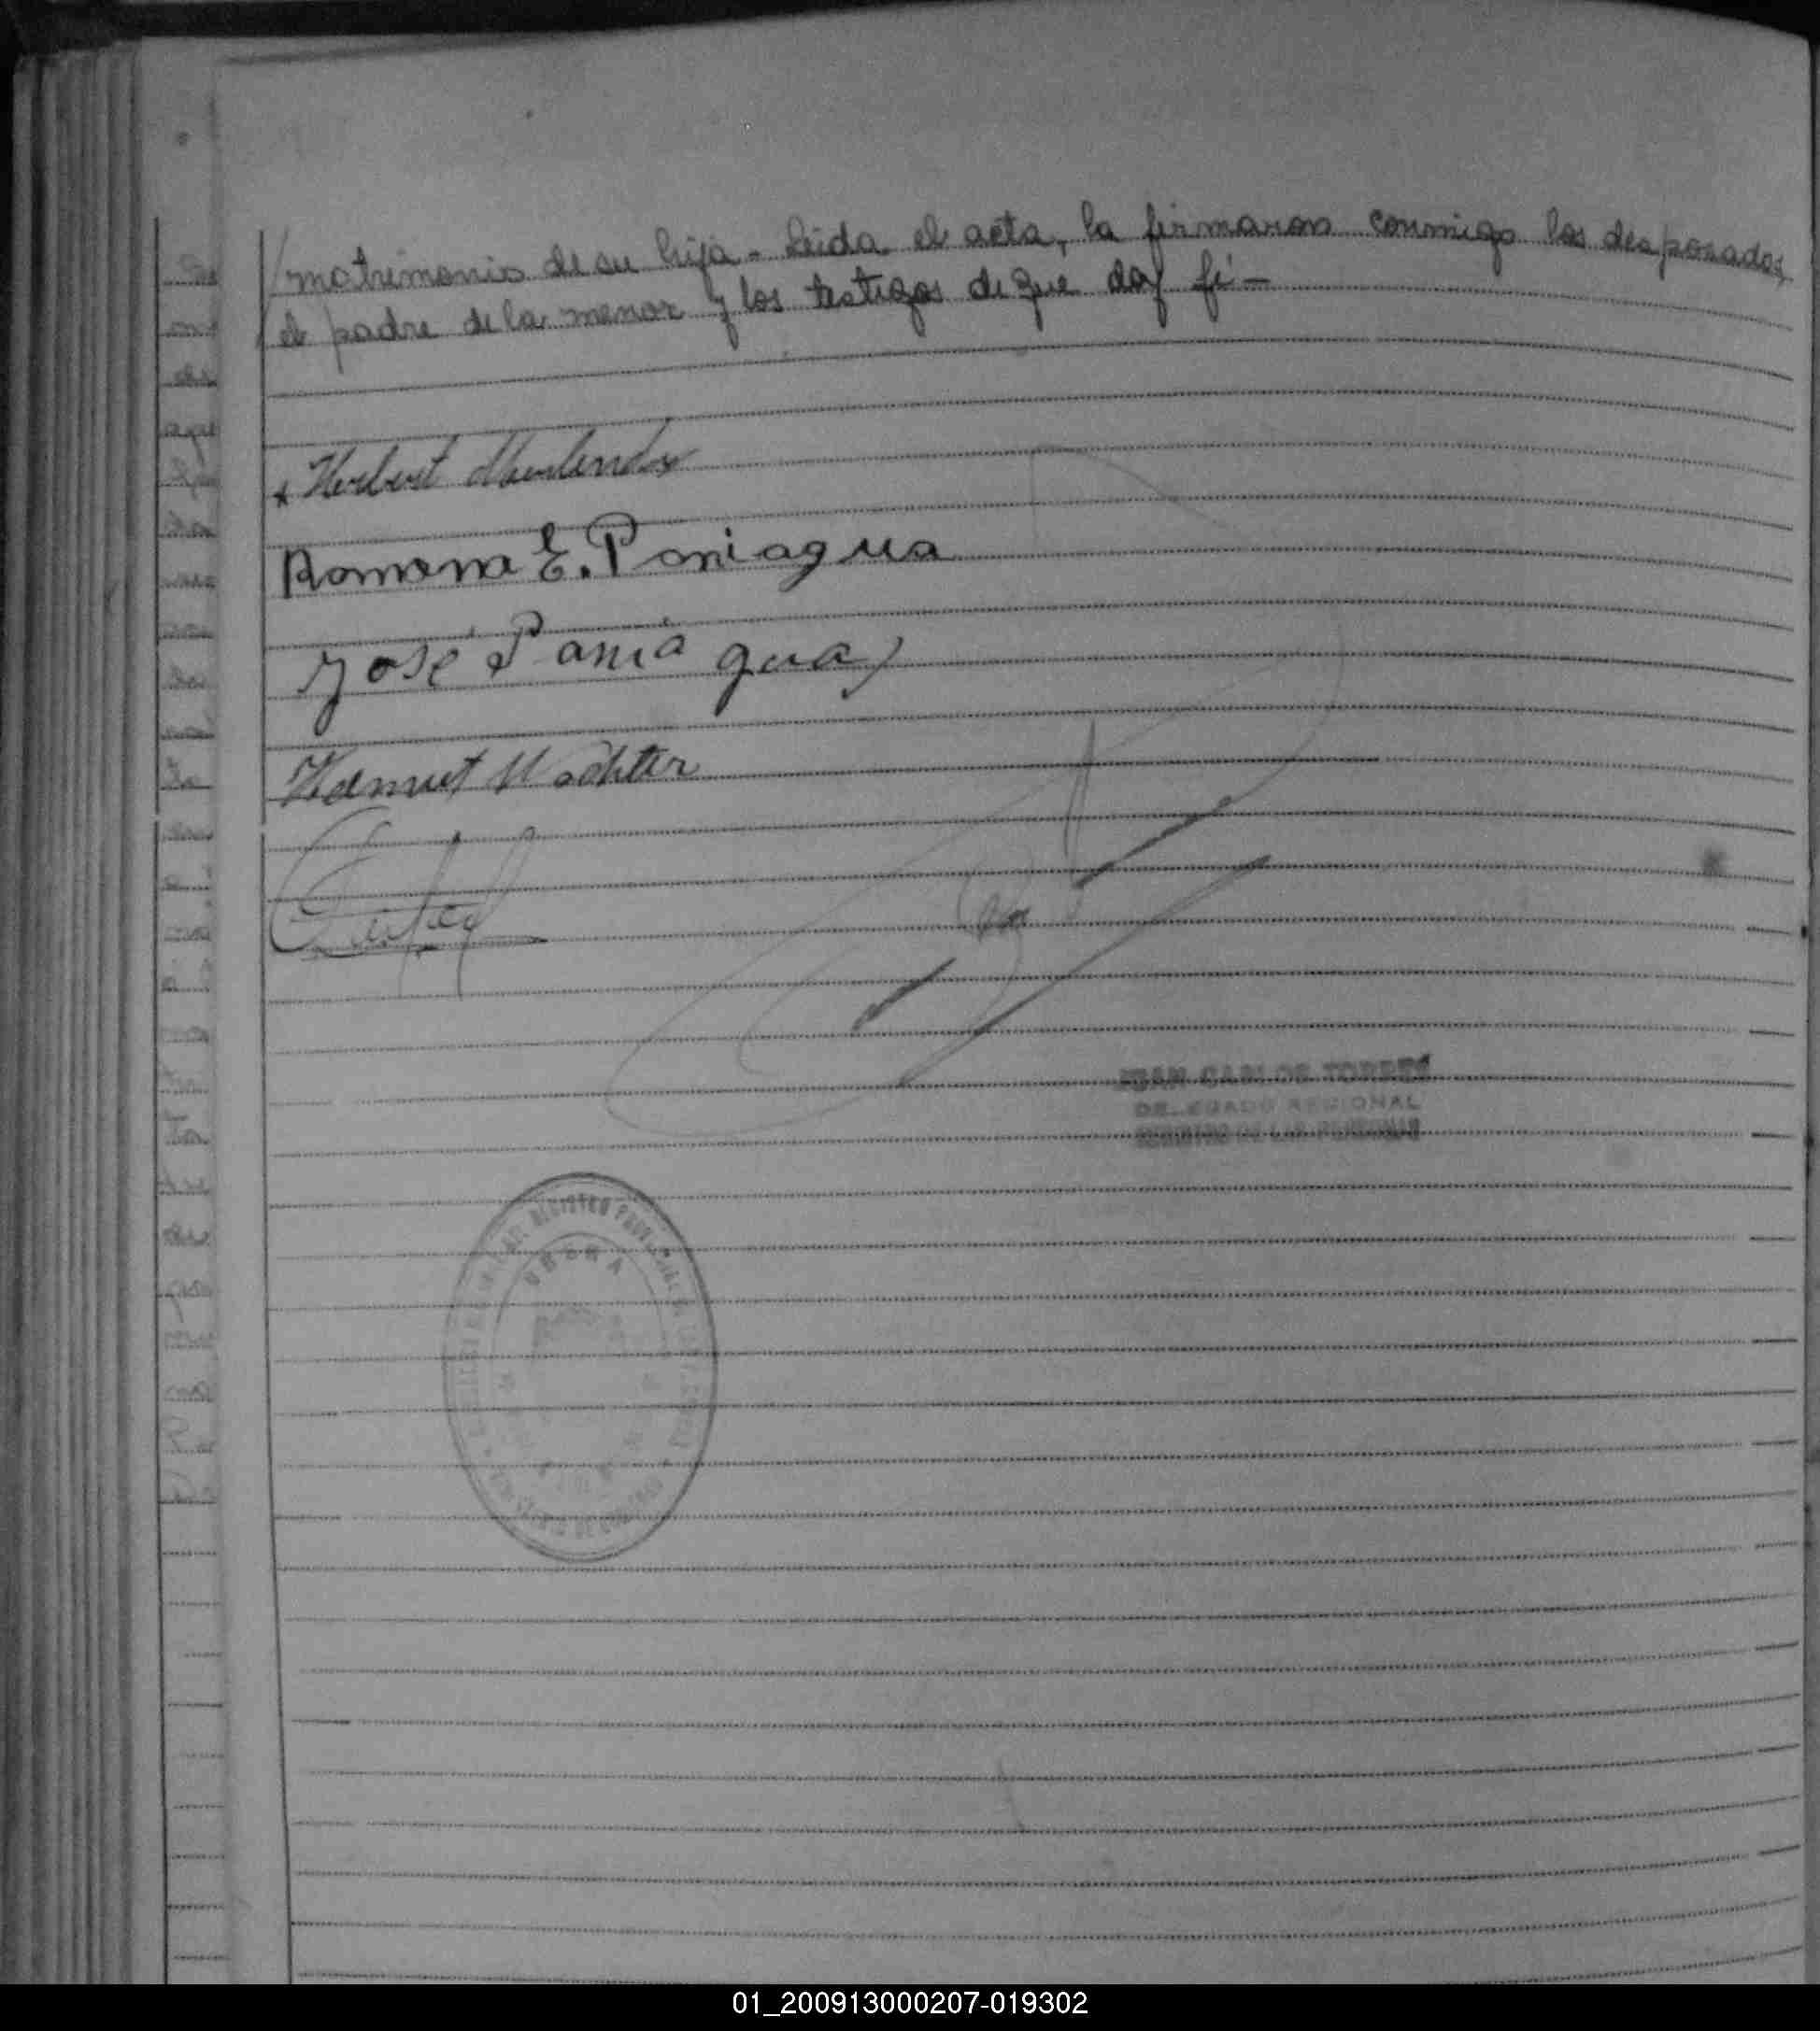 matrimonio de su hija - Leida el acta, la firmaron conmigo los desposados,
el padre de la menor y los testigos de que doy fé -
Herbert
Romena E. Paniagua
José Paniagua
Helmut Wachter
JUAN CARLOS TORRES
DELEGADO REGIONAL
REGISTRO DE LAS PERSONAS
01_200913000207-019302